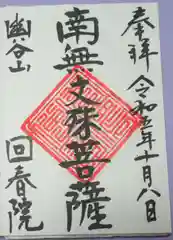 奉拝 令和五年十月八日
南無文殊菩薩
幽谷山
回春院